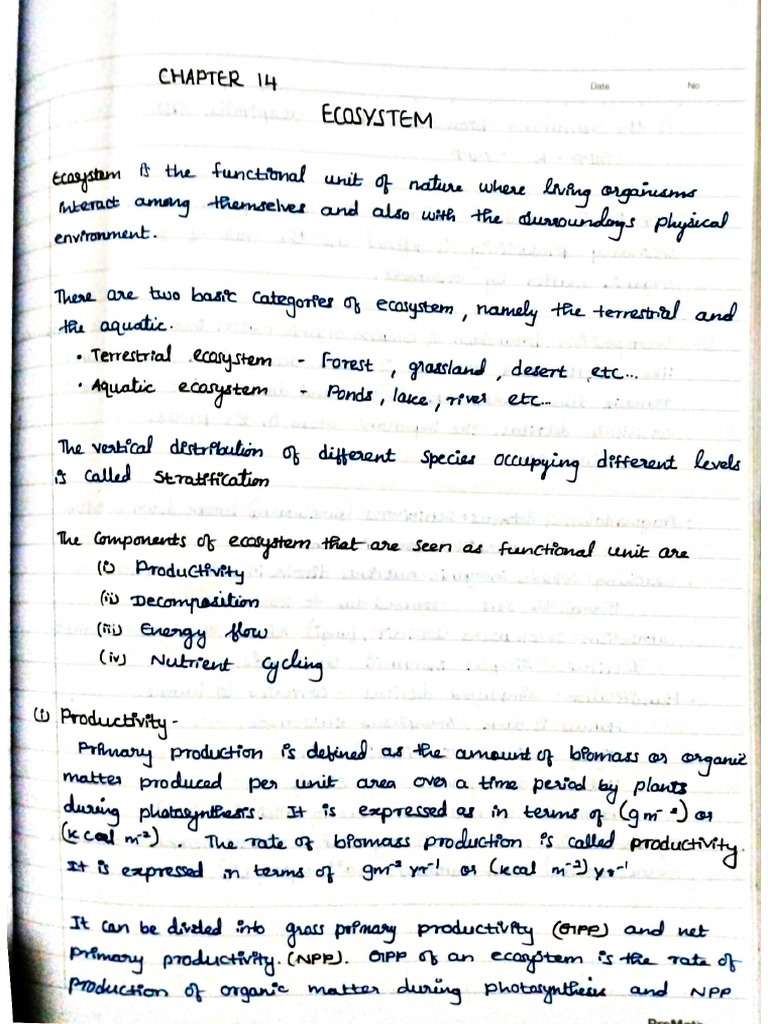 CHAPTER 14
Date No
ECOSYSTEM
Ecosystem is the functional unit of nature where living organisms
interact among themselves and also with the surroundings physical
environment.
There are two basic categories of ecosystem, namely the terrestrial and
the aquatic.
• Terrestrial ecosystem - Forest, grassland, desert etc...
• Aquatic ecosystem - Ponds, lake, river etc...
The vertical distribution of different species occupying different levels
is called Stratification
The components of ecosystem that are seen as functional unit are
(i) Productivity
(ii) Decomposition
(iii) Energy flow
(iv) Nutrient Cycling
(i) Productivity -
Primary production is defined as the amount of biomass or organic
matter produced per unit area over a time period by plants
during photosynthesis. It is expressed as in terms of (gm⁻²) or
(kcal m⁻²). The rate of biomass production is called productivity.
It is expressed in terms of gm⁻² yr⁻¹ or (kcal m⁻²) yr⁻¹
It can be divided into gross primary productivity (GPP) and net
primary productivity. (NPP). GPP of an ecosystem is the rate of
production of organic matter during photosynthesis and NPP